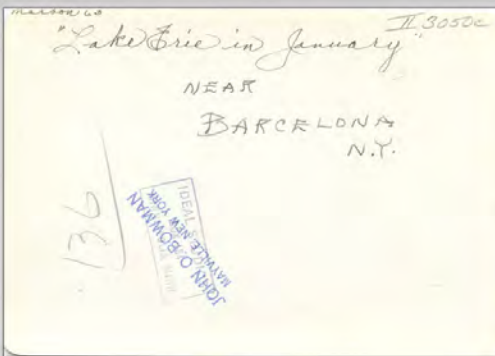 II.3050c
"Lake Erie in January"
NEAR
BARCELONA
N.Y.
136
IDEAL
JOHN O. BOWMAN
MAYVILLE NEW YORK